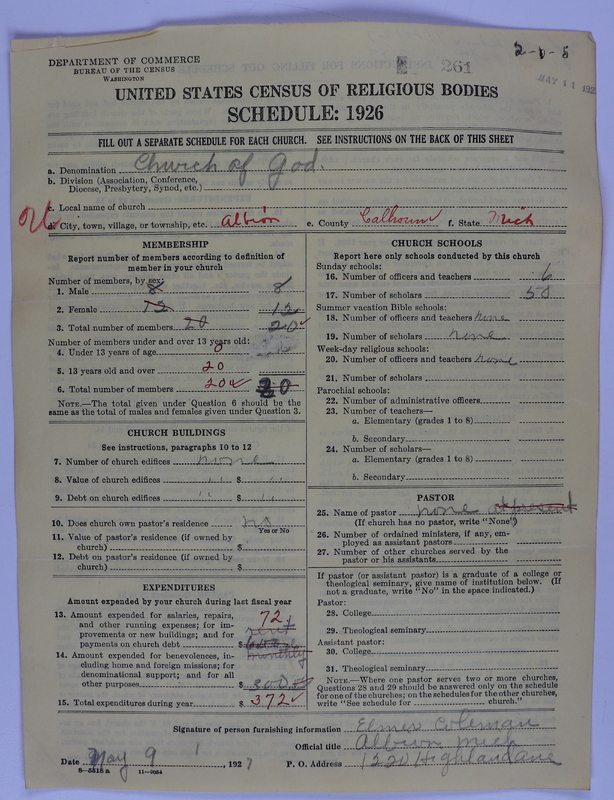 2-0-5
261
MAY 11 192
DEPARTMENT OF COMMERCE
BUREAU OF THE CENSUS
WASHINGTON
UNITED STATES CENSUS OF RELIGIOUS BODIES
SCHEDULE: 1926
FILL OUT A SEPARATE SCHEDULE FOR EACH CHURCH. SEE INSTRUCTIONS ON THE BACK OF THIS SHEET
a. Denomination Church of God.
b. Division (Association, Conference,
Diocese, Presbytery, Synod, etc.)
c. Local name of church
d. City, town, village, or township, etc. Albion e. County Calhoun f. State Mich
MEMBERSHIP
Report number of members according to definition of
member in your church
Number of members, by sex:
1. Male 8 8
2. Female 12 12
3. Total number of members 20 20
Number of members under and over 13 years old:
4. Under 13 years of age 0
5. 13 years old and over 20
6. Total number of members 20 20
NOTE.—The total given under Question 6 should be
same as the total of males and females given under Question 3.
CHURCH BUILDINGS
See instructions, paragraphs 10 to 12
7. Number of church edifices none
8. Value of church edifices " $ "
9. Debt on church edifices " $ "
10. Does church own pastor's residence no
Yes or No
11. Value of pastor's residence (if owned by
church) $
12. Debt on pastor's residence (if owned by
church) $
EXPENDITURES
Amount expended by your church during last fiscal year
13. Amount expended for salaries, repairs,
and other running expenses; for im-
provements or new buildings; and for
payments on church debt $
72
rent
14. Amount expended for benevolences, in-
cluding home and foreign missions; for
denominational support; and for all
other purposes $ 300
15. Total expenditures during year $ 372
CHURCH SCHOOLS
Report here only schools conducted by this church
Sunday schools:
16. Number of officers and teachers 6
17. Number of scholars 50
Summer vacation Bible schools:
18. Number of officers and teachers none
19. Number of scholars none
Week-day religious schools:
20. Number of officers and teachers none
21. Number of scholars
Parochial schools:
22. Number of administrative officers
23. Number of teachers—
a. Elementary (grades 1 to 8)
b. Secondary
24. Number of scholars—
a. Elementary (grades 1 to 8)
b. Secondary
PASTOR
25. Name of pastor none at present
(If church has no pastor, write "None")
26. Number of ordained ministers, if any, em-
ployed as assistant pastors
27. Number of other churches served by the
pastor or his assistants
If pastor (or assistant pastor) is a graduate of a college or
theological seminary, give name of institution below. (If
not a graduate, write "No" in the space indicated.)
Pastor:
28. College
29. Theological seminary
Assistant pastor:
30. College
31. Theological seminary
NOTE.—Where one pastor serves two or more churches,
Questions 28 and 29 should be answered only on the schedule
for one of the churches; on the schedules for the other churches,
write "See schedule for church."
Signature of person furnishing information Elmer Coleman
Official title Albion Mich
Date May 9, 1927 P. O. Address 1220 Highland ave
8-5518 a 11-9054